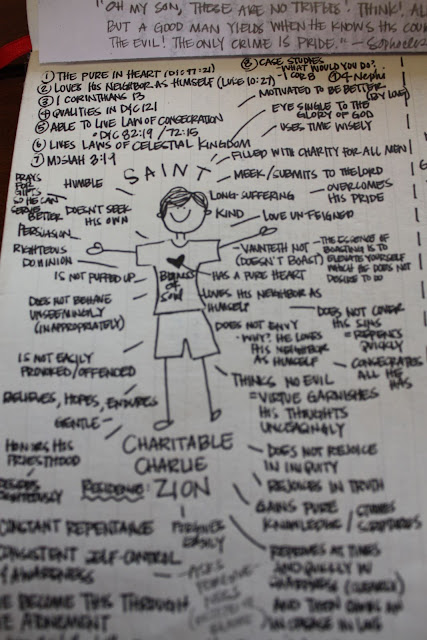 "OH MY SON, THESE ARE NO TRIFLES! THINK! ALL
BUT A GOOD MAN YIELDS WHEN HE KNOWS HIS COU
THE EVIL! THE ONLY CRIME IS PRIDE." — Sophocles
① THE PURE IN HEART (D&C 97:21)
② LOVES HIS NEIGHBOR AS HIMSELF (LUKE 10:27)
③ 1 CORINTHIANS 13
④ QUALITIES IN D&C 121
⑤ ABLE TO LIVE LAW OF CONSECRATION
• D&C 82:19 / 72:15
⑥ LIVES LAWS OF CELESTIAL KINGDOM
⑦ MOSIAH 3:19
⑧ CASE STUDIES
WHAT WOULD YOU DO?
- 1 COR 8
4 Nephi
MOTIVATED TO BE BETTER
(BY LOVE)
EYE SINGLE TO THE
GLORY OF GOD
USES TIME WISELY
FILLED WITH CHARITY FOR ALL MEN
SAINT
MEEK/SUBMITS TO THE LORD
PRAYS
FOR
GIFTS
SO HE CAN
SERVE
BETTER
HUMBLE
LONG SUFFERING
OVERCOMES
HIS PRIDE
DOESN'T SEEK
HIS OWN
KIND
LOVE UNFEIGNED
PERSUASION
RIGHTEOUS
DOMINION
VAUNTETH NOT
(DOESN'T BOAST)
- THE ESSENCE OF
BOASTING IS TO
ELEVATE YOURSELF
WHICH HE DOES NOT
DESIRE TO DO
IS NOT PUFFED UP
BOWELS
of
soul
HAS A PURE HEART
LOVES HIS NEIGHBOR AS
HIMSELF
DOES NOT BEHAVE
UNSEEMINGLY
(INAPPROPRIATELY)
DOES NOT ENVY
• WHY? HE LOVES
HIS NEIGHBOR
AS HIMSELF
DOES NOT COVER
HIS SINS
= REPENTS
QUICKLY
IS NOT EASILY
PROVOKED/OFFENDED
CONSECRATES
ALL HE
HAS
THINKS NO EVIL
= VIRTUE GARNISHES
HIS THOUGHTS
UNCEASINGLY
BELIEVES, HOPES, ENDURES
GENTLE
CHARITABLE
CHARLIE
HONORS HIS
PRIESTHOOD
DOES NOT REJOICE
IN INIQUITY
RESIDENCE: ZION
REJOICES IN TRUTH
GAINS PURE
KNOWLEDGE / STUDIES
SCRIPTURES
CONSTANT REPENTANCE
FORGIVES
EASILY
CONSISTENT SELF-CONTROL
AWARENESS
REPROVES AT TIMES
AND QUICKLY W/
SHARPNESS (CLEARLY)
AND THEN
BECOME THIS THROUGH
ATONEMENT